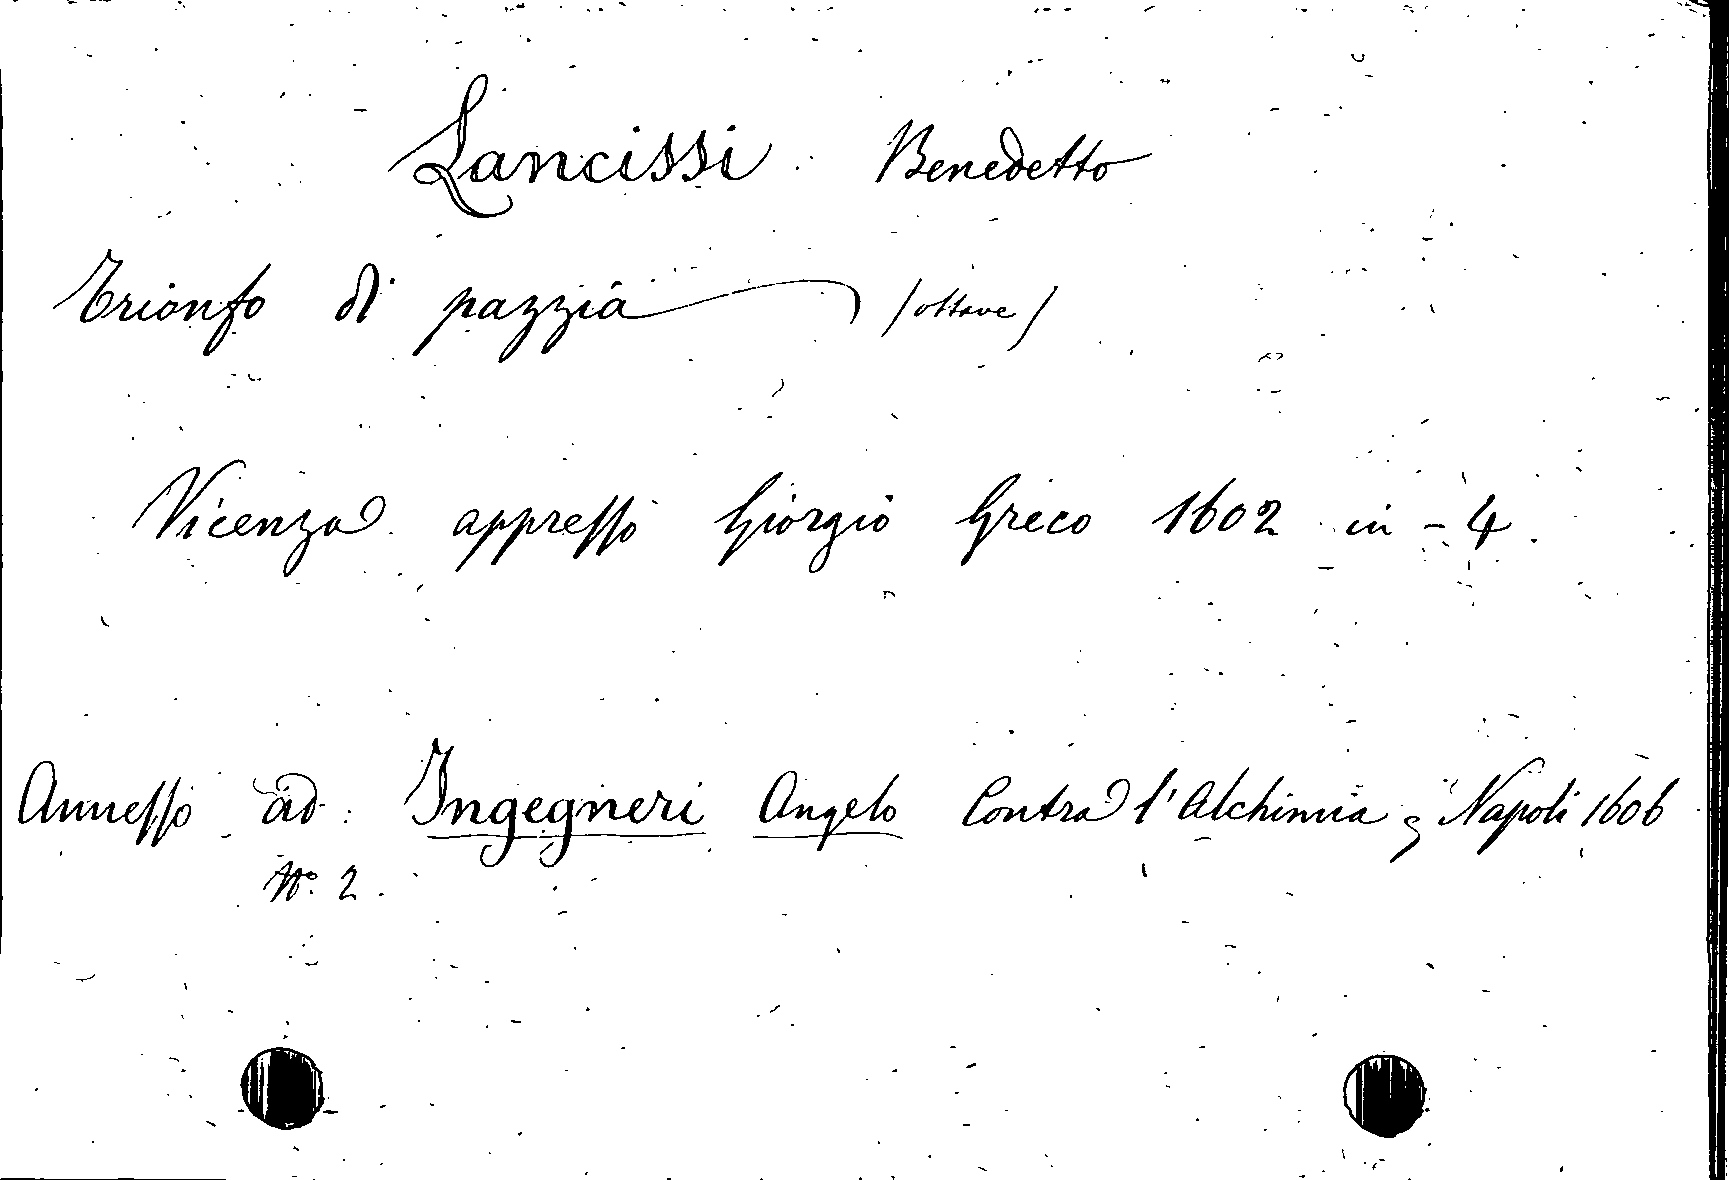 Lancissi Benedetto
Trionfo di pazzia (ottave)
Vicenza appresso Giorgio Greco 1602 in-4.
Annesso ad: Ingegneri Angelo Contra l'Alchimia, Napoli 1606
No. 2.